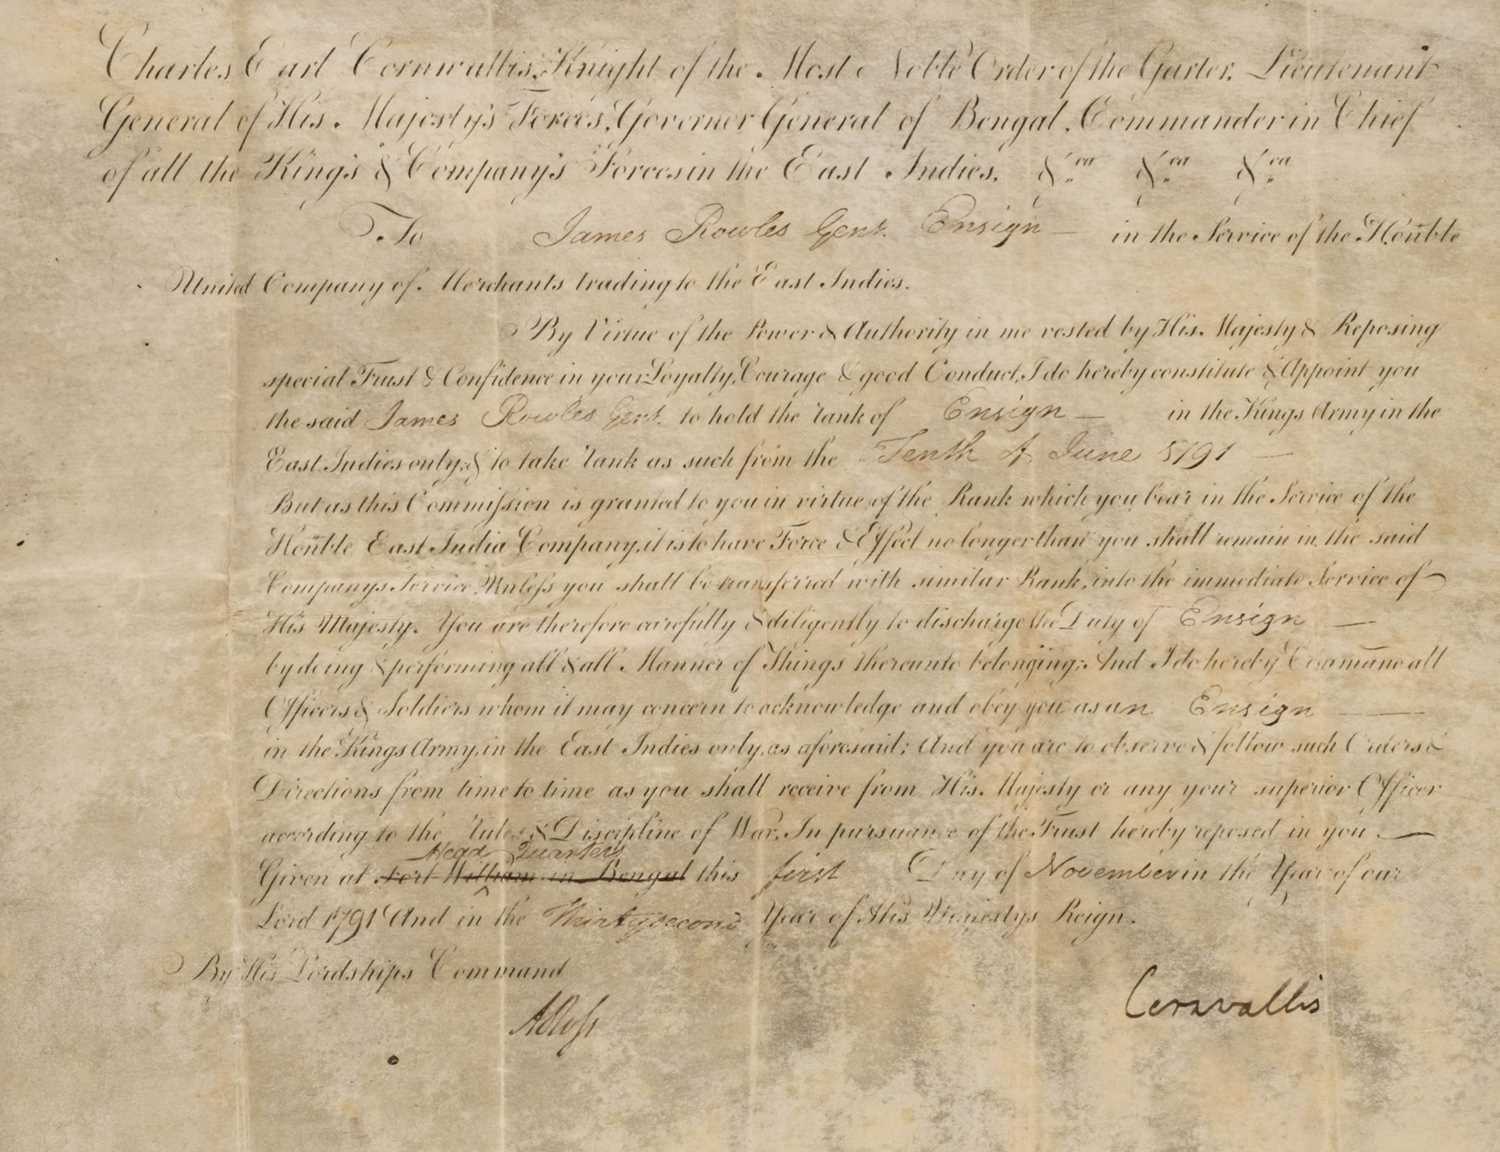 Charles Earl Cornwallis, Knight of the Most Noble Order of the Garter, Lieutenant
General of His Majesty's Forces, Governor General of Bengal, Commander in Chief
of all the King's & Company's Forces in the East Indies, &ca &ca &ca
To James Rowles Gent. Ensign — in the Service of the Hoñble
United Company of Merchants trading to the East Indies.
By Virtue of the Power & Authority in me vested by His Majesty & Reposing
special Trust & Confidence in your Loyalty, Courage & good Conduct, I do hereby constitute & Appoint you
the said James Rowles Gent. to hold the rank of Ensign — in the Kings Army in the
East Indies only; & to take rank as such from the Tenth of June 1791 —
But as this Commission is granted to you in virtue of the Rank which you bear in the Service of the
Hoñble East India Company, it is to have Force & Effect no longer than you shall remain in the said
Companys Service Unless you shall be transferred with similar Rank, into the immediate Service of
His Majesty. You are therefore carefully & diligently to discharge the Duty of Ensign —
by doing & performing all & all Manner of Things thereunto belonging; And I do hereby Command all
Officers & Soldiers whom it may concern to acknowledge and obey you as an Ensign —
in the Kings Army in the East Indies only, as aforesaid; And you are to observe & follow such Orders &
Directions from time to time as you shall receive from His Majesty or any your superior Officer
according to the Rules & Discipline of War. In pursuance of the Trust hereby reposed in you.
Head Quarters
Given at Fort William in Bengal this first Day of November in the Year of our
Lord 1791 And in the Thirty second Year of His Majestys Reign.
By His Lordships Command
ARoss
Cornwallis